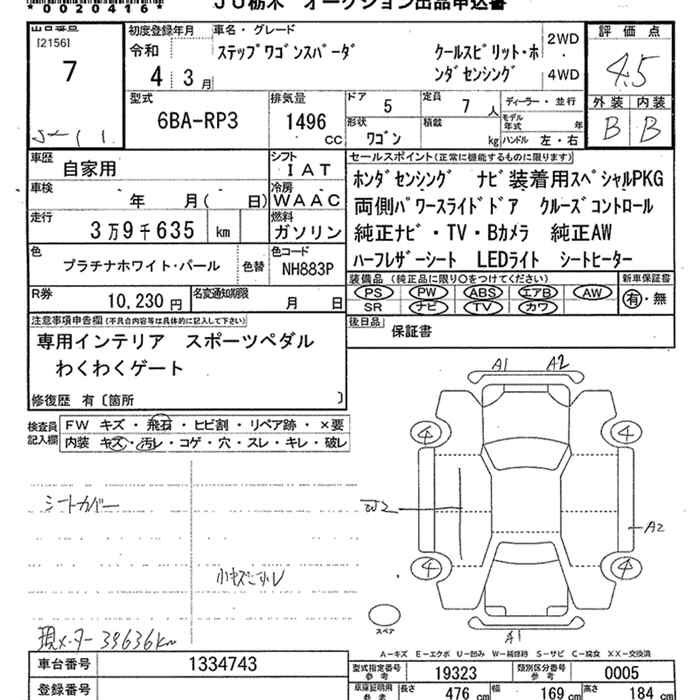 *0020416* JU栃木 オークション出品申込書
出品番号
[2156]
7
初度登録年月
令和
4 3月
車名・グレード
ステップワゴンスパーダ
クールスピリット・ホンダセンシング
2WD
4WD
評価点
4.5
外装 内装
B B
型式
6BA-RP3
排気量
1496
cc
ドア
5
定員
7人
形状
ワゴン
積載
kg
ディーラー・並行
モデル年式 年
ハンドル 左・右
車歴
自家用
シフト
IAT
車検
年 月( 日)
冷房
WAAC
走行
3万9千635 km
燃料
ガソリン
色
プラチナホワイト・パール
色替
色コード
NH883P
R券
10,230円
名変通知期限
月 日
セールスポイント(正常に機能するものに限ります)
ホンダセンシング ナビ装着用スペシャルPKG
両側パワースライドドア クルーズコントロール
純正ナビ・TV・Bカメラ 純正AW
ハーフレザーシート LEDライト シートヒーター
装備品 (純正品に限り○をつけてください)
PS PW ABS エアB AW
SR ナビ TV カワ
新車保証書
有・無
後日品
保証書
注意事項申告欄(不具合内容等は具体的に記入して下さい)
専用インテリア スポーツペダル
わくわくゲート
修復歴 有〔箇所 〕
検査員記入欄
FW キズ・飛石・ヒビ割・リペア跡・×要
内装 キズ・汚レ・コゲ・穴・スレ・キレ・破レ
シートカバー
小キズ
現メーター 39636km
A1 A2
4 4
W2
A2
4 4
A1
スペア
A-キズ E-エクボ U-凹み W-補修跡 S-サビ C-腐食 XX-交換済
車台番号
1334743
登録番号
型式指定番号
参考
19323
類別区分番号
参考
0005
車庫証明用
参考
長さ 476 cm
幅 169 cm
高さ 184 cm